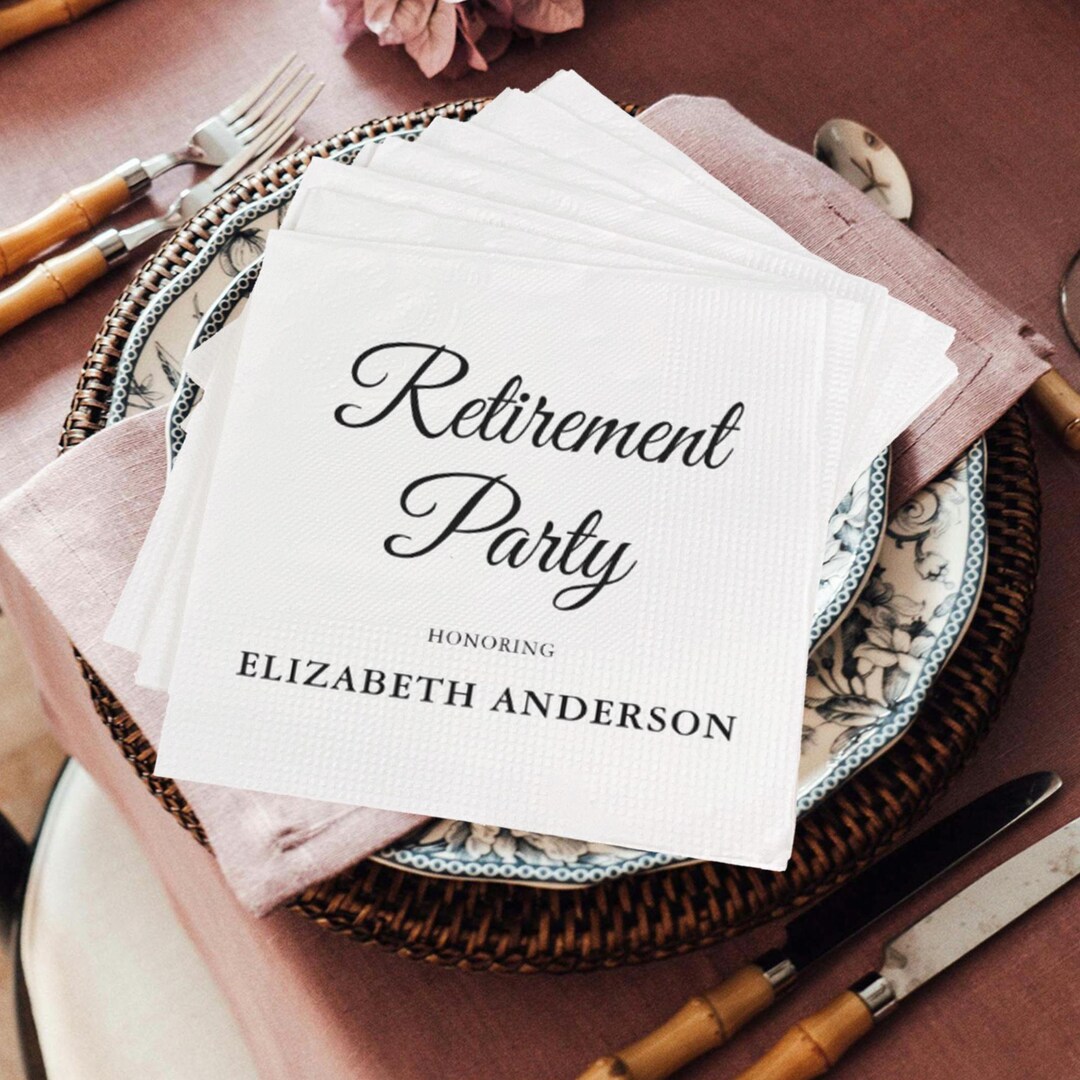 Retirement
Party
HONORING
ELIZABETH ANDERSON